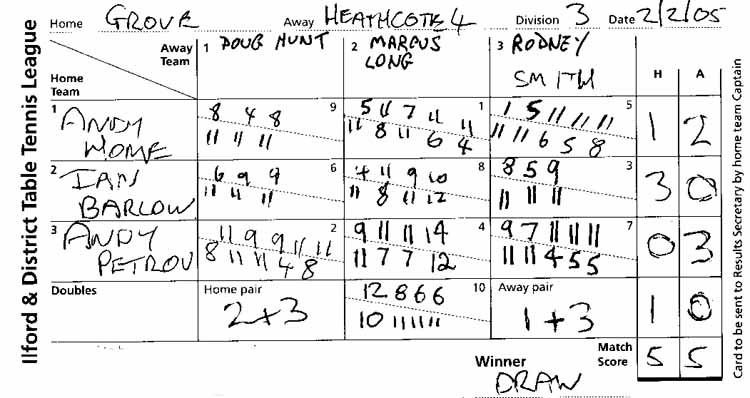 Ilford & District Table Tennis League
Home GROVE Away HEATHCOTE 4 Division 3 Date 2/2/05
Away Team
Home Team
1 DOUG HUNT
2 MARCUS LONG
3 RODNEY SMITH
H A
1 ANDY HOME
8 4 8 9
11 11 11
5 11 7 11 11 1
11 8 11 6 4
1 5 11 11 11 5
11 11 6 5 8
1 2
2 IAN BARLOW
6 9 9 6
11 11 11
4 11 9 10 8
11 8 11 12
8 5 9 3
11 11 11
3 0
3 ANDY PETROV
11 9 9 11 11 2
8 11 11 4 8
9 11 11 14 4
11 7 7 12
9 7 11 11 11 7
11 11 4 5 5
0 3
Doubles
Home pair
2+3
12 8 6 6 10
10 11 11 11
Away pair
1+3
1 0
Winner DRAW
Match Score 5 5
Card to be sent to Results Secretary by home team Captain